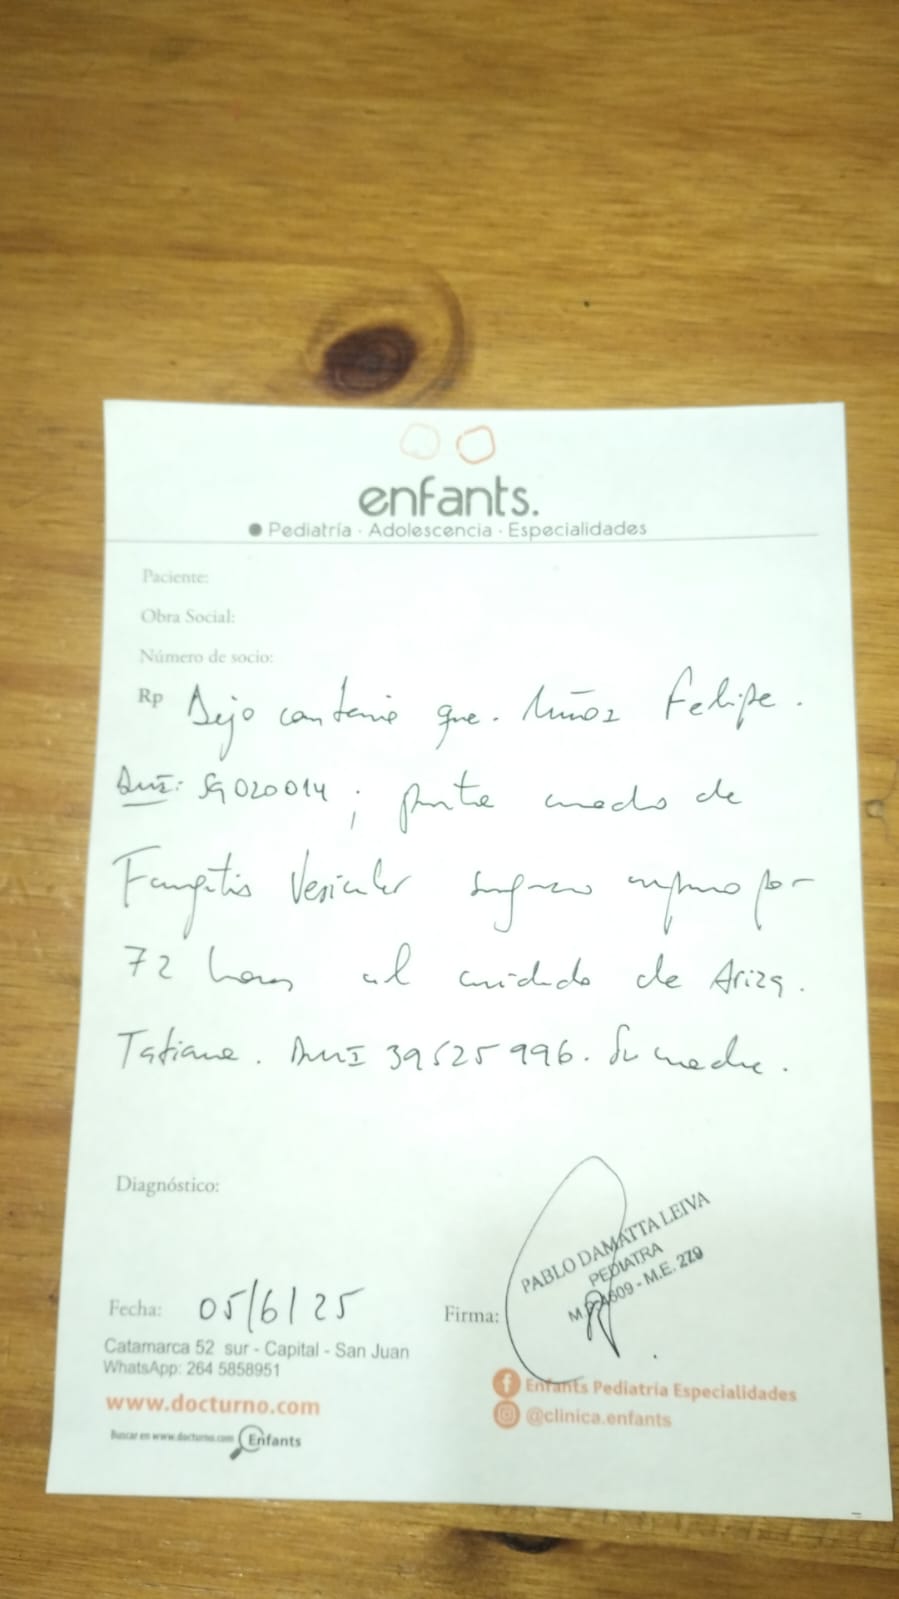 enfants.
Pediatría · Adolescencia · Especialidades
Paciente:
Obra Social:
Número de socio:
Rp Dejo constancia que. Muñoz Felipe.
DNI: 59020014 ; de
Faringitis Vesicular sugiero reposo por
72 horas al cuidado de Ariza.
Tatiana. DNI 39525996. Su madre.
Diagnóstico:
PABLO DAMATTA LEIVA
PEDIATRA
M.P. 4609 - M.E. 279
Fecha: 05/6/25
Firma:
Catamarca 52 sur - Capital - San Juan
WhatsApp: 264 5858951
www.docturno.com
Buscar en www.docturno.com Enfants
Enfants Pediatría Especialidades
@clinica.enfants